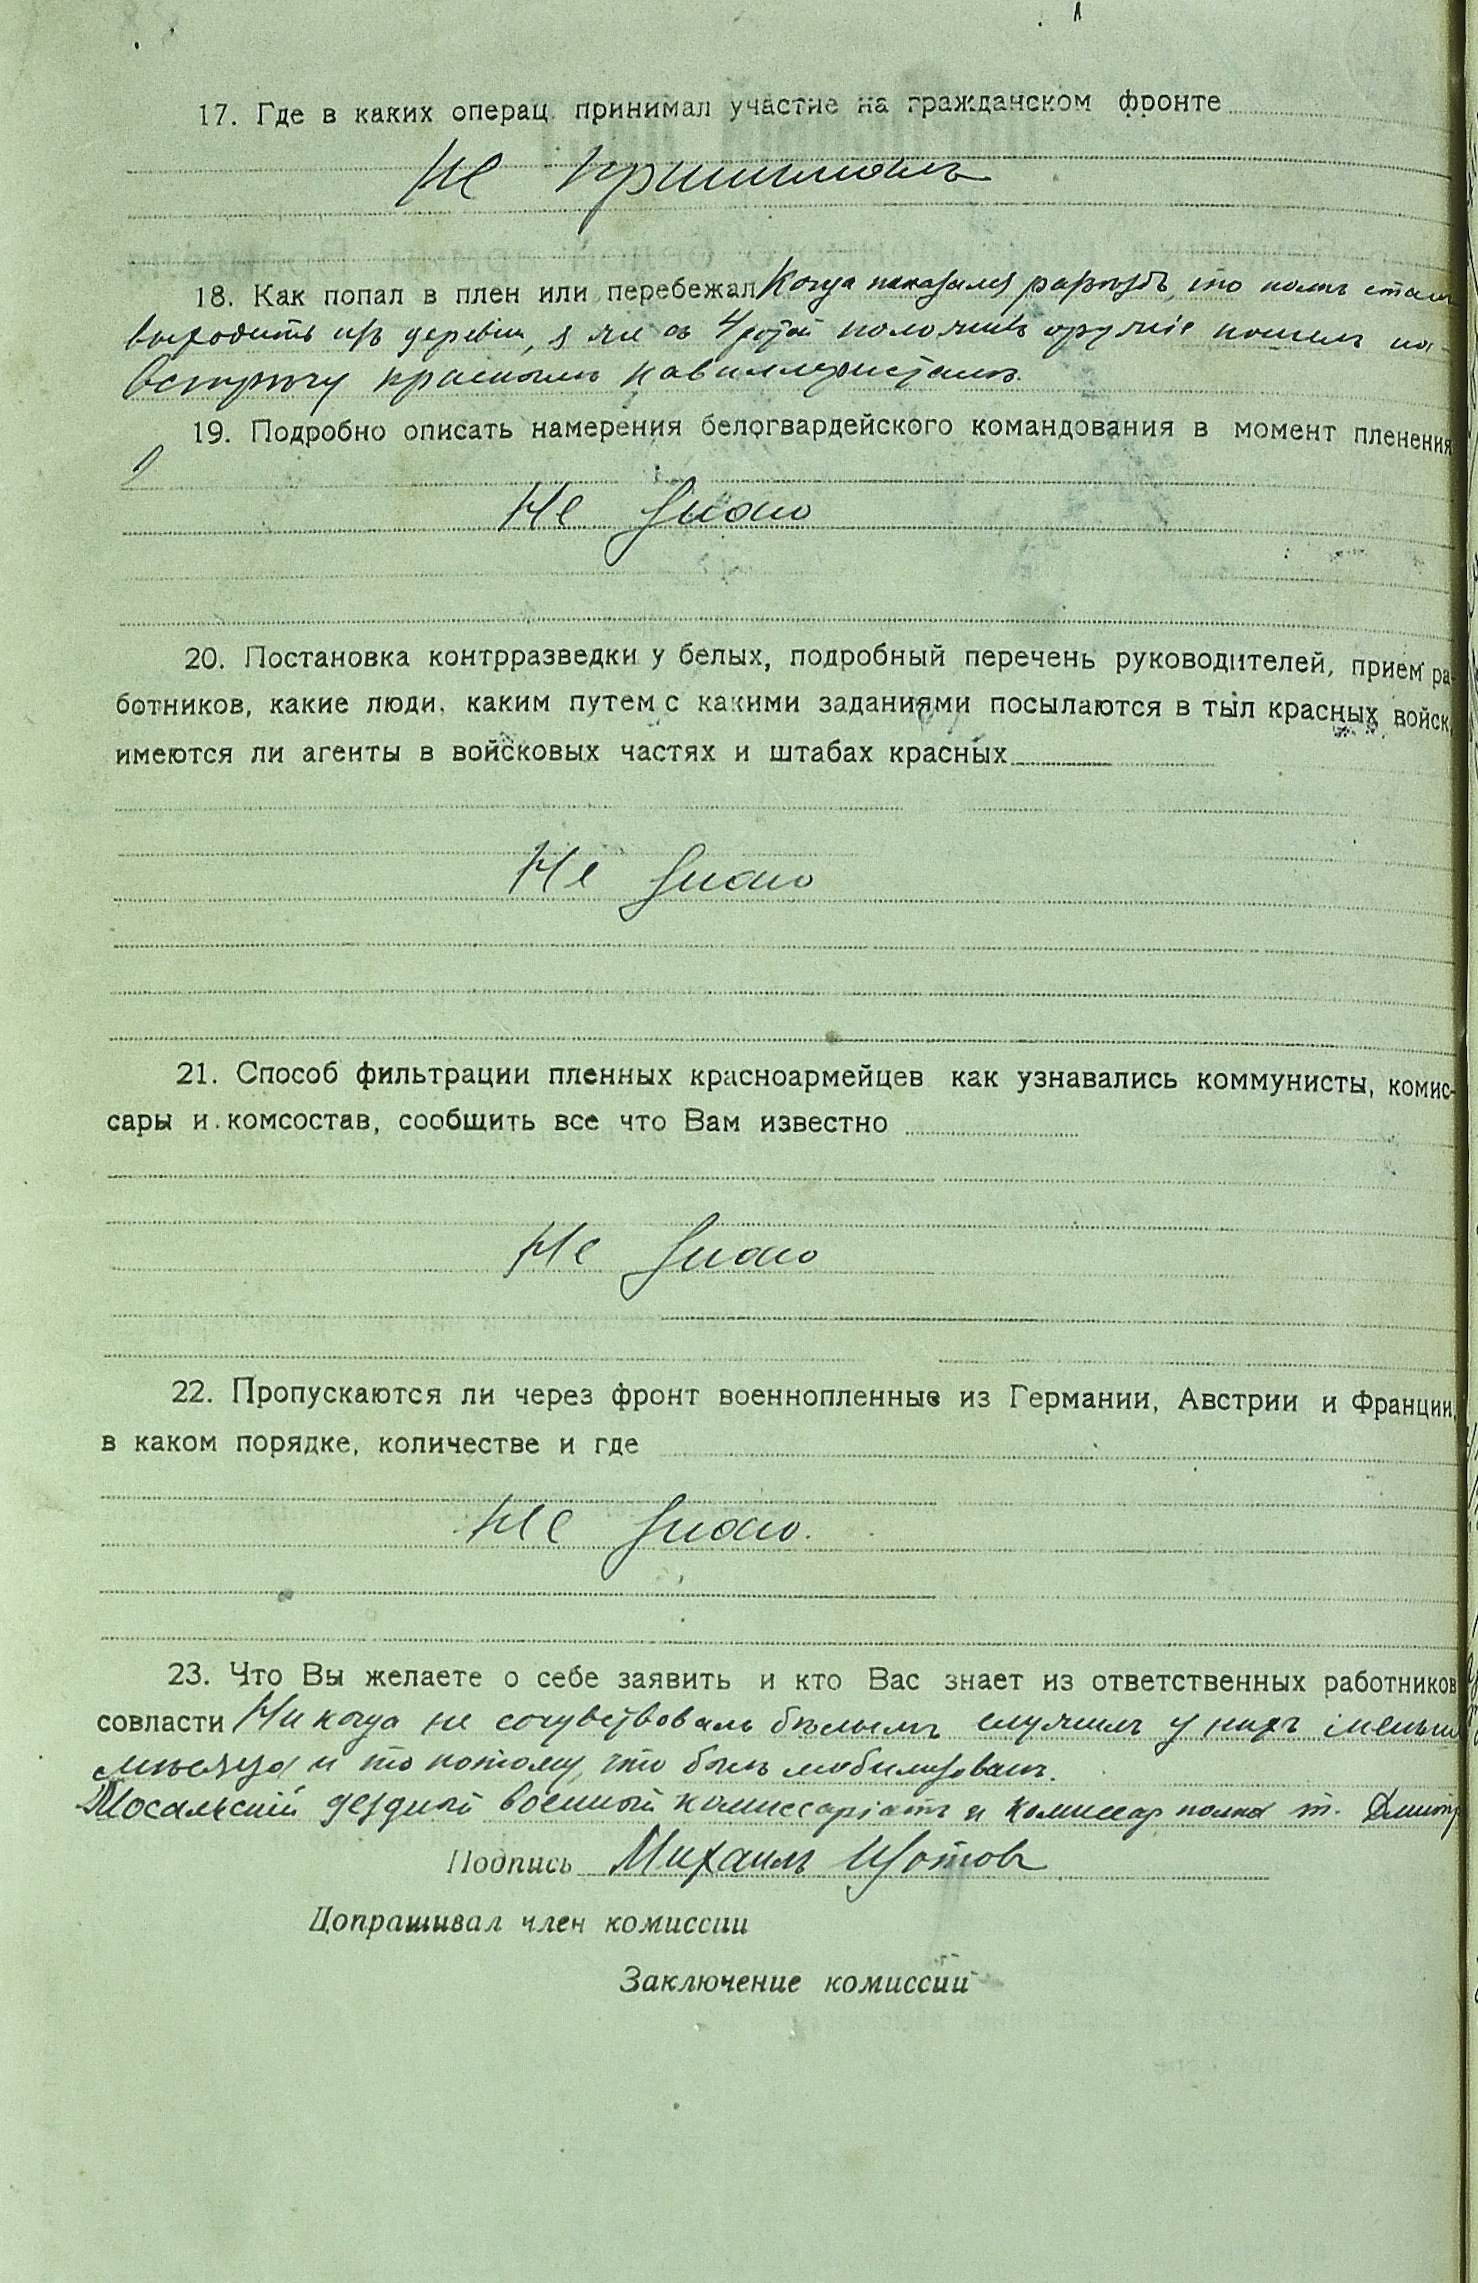 17. Где в каких операц. принимал участие на гражданском фронте
Не принималъ
18. Как попал в плен или перебежал Когда показался разъѣздъ, то полкъ сталъ
выходить изъ деревни, я же съ 4 ротой положивъ оружіе пошелъ на
встрѣчу краснымъ кавалеристамъ.
19. Подробно описать намерения белогвардейского командования в момент пленения
Не знаю
20. Постановка контрразведки у белых, подробный перечень руководителей, прием ра-
ботников, какие люди, каким путем с какими заданиями посылаются в тыл красных войск,
имеются ли агенты в войсковых частях и штабах красных
Не знаю
21. Способ фильтрации пленных красноармейцев как узнавались коммунисты, комис-
сары и комсостав, сообщить все что Вам известно
Не знаю
22. Пропускаются ли через фронт военнопленные из Германии, Австрии и Франции,
в каком порядке, количестве и где
Не знаю.
23. Что Вы желаете о себе заявить и кто Вас знает из ответственных работников
совласти Никогда не сочувствовалъ бѣлымъ служилъ у нихъ меньше
мѣсяца и то потому, что былъ мобилизованъ.
Мосальскій уездный военный комиссаріатъ и комиссар полка т.
Подпись Михаилъ Изотовъ
Допрашивал член комиссии
Заключение комиссии